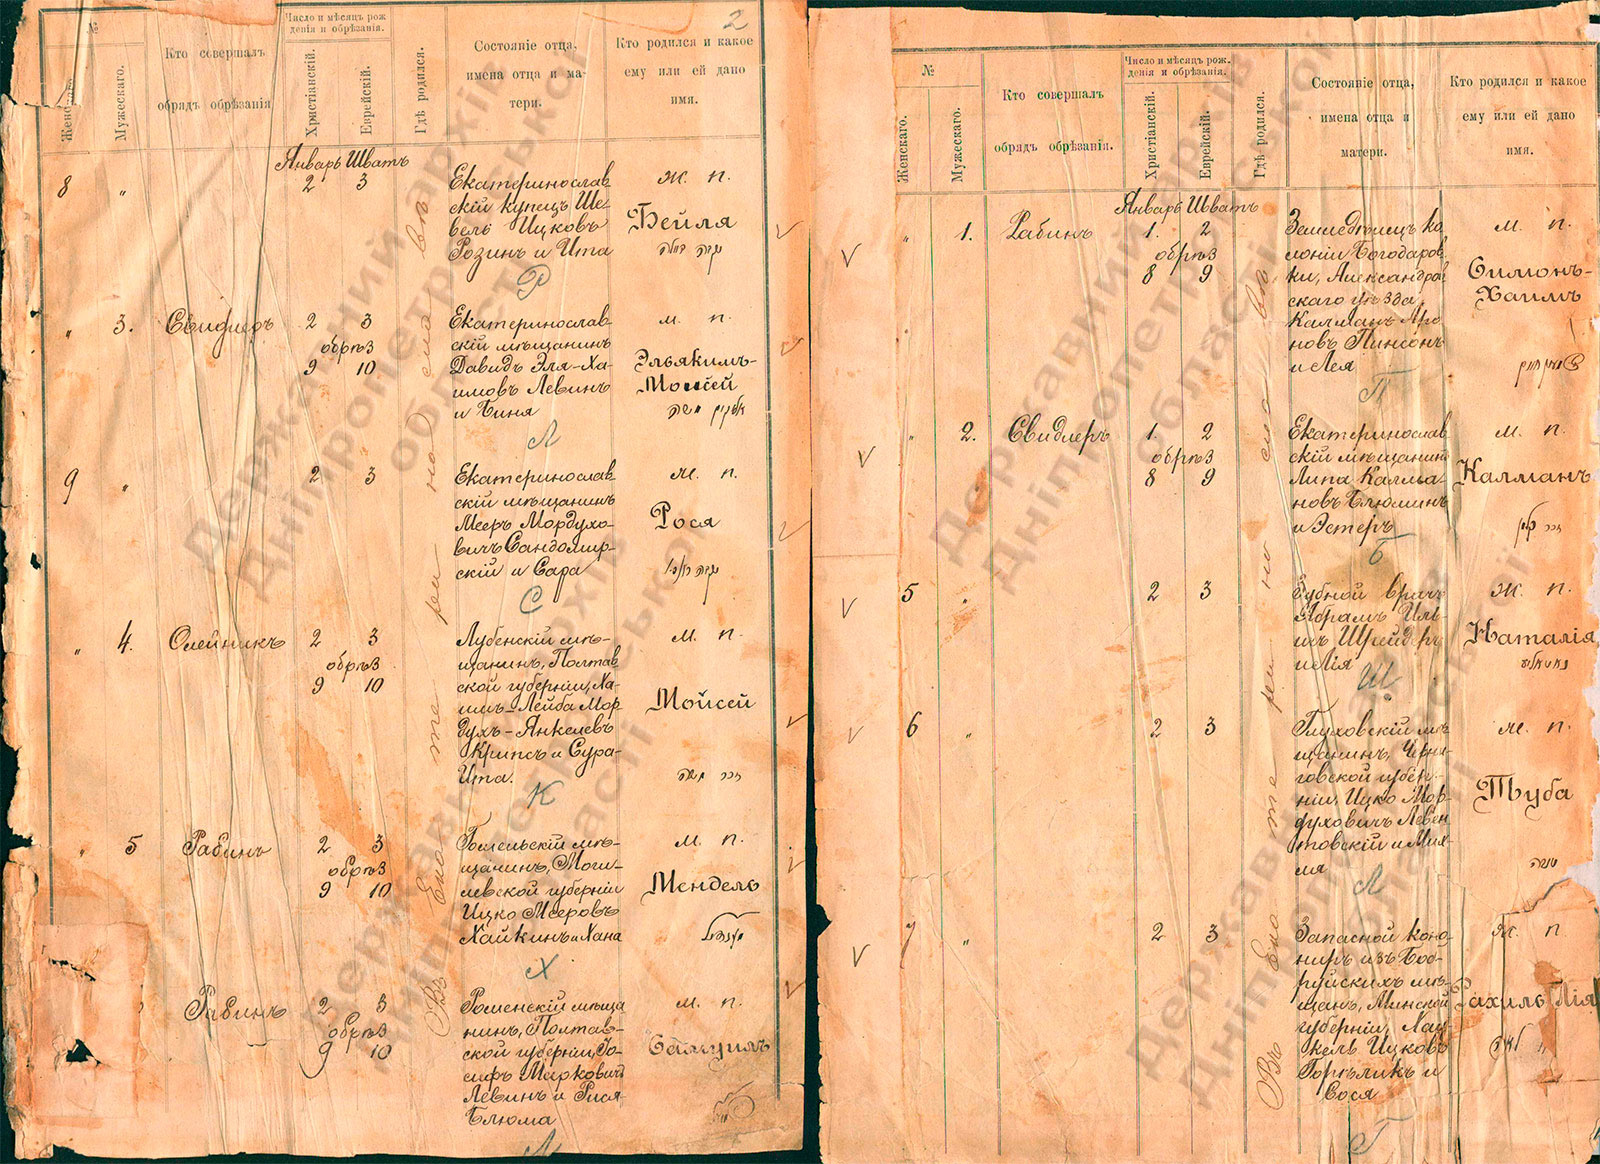 2
№
Женскаго.
Мужескаго.
Кто совершалъ
обрядъ обрѣзанія
Число и мѣсяцъ рож
денія и обрѣзанія.
Христіанскій.
Еврейскій.
Гдѣ родился.
Состояніе отца,
имена отца и ма-
тери.
Кто родился и какое
ему или ей дано
имя.
Январь Шватъ
8 " 2 3
Екатеринослав
скій купецъ Ше-
вель Ицковъ
Розинъ и Ита
ж. п.
Бейля
Р
" 3. Свидлеръ 2 3
обрѣз
9 10
Екатеринослав-
скій мѣщанинъ
Давидъ Эля-Ха-
имовъ Левинъ
и Биня
м. п.
Эльякимъ-
Мойсей
Л
9 " 2 3
Екатеринослав
скій мѣщанинъ
Мееръ Мордухо-
вичъ Сандомир-
скій и Сара
ж. п.
Рося
С
" 4. Олейникъ 2 3
обрѣз
9 10
Лубенскій мѣ-
щанинъ, Полтав
ской губерніи, Ха-
имъ-Лейба Мор-
духъ-Янкелевъ
Крипсъ и Сура-
Ита.
м. п.
Мойсей
К
" 5 Рабинъ 2 3
обрѣз
9 10
Гомельскій мѣ-
щанинъ, Моги-
левской губерніи
Ицко Мееровъ
Хайкинъ и Хана
м. п.
Мендель
Х
Рабинъ 2 3
обрѣз
9 10
Роменскій мѣща
нинъ, Полтав-
ской губерніи, Іо-
сифъ Мерковичъ
Левинъ и Рися-
Блюма
м. п.
Самуилъ
Л
Въ Екатеринославѣ
№
Женскаго.
Мужескаго.
Кто совершалъ
обрядъ обрѣзанія.
Число и мѣсяцъ рож.
денія и обрѣзанія.
Христіанскій.
Еврейскій.
Гдѣ родился.
Состояніе отца,
имена отца и
матери.
Кто родился и какое
ему или ей дано
имя.
Январь Шватъ
" 1. Рабинъ 1. 2
обрѣз
8 9
Земледѣлецъ ко
лоніи Богодаров
ки, Александров
скаго уѣзда,
Калманъ Аро
новъ Пинсонъ
и Лея
м. п.
Симонъ-
Хаимъ
П
" 2. Свидлеръ 1. 2
обрѣз
8 9
Екатеринослав
скій мѣщанинъ
Липа Калма-
новъ Блюминъ
и Эстеръ
м. п.
Калманъ
Б
5 " 2 3
Зубной врачъ
Абрамъ Иль-
ихъ Шрейдеръ
и Лія
ж. п.
Наталія
Ш
6 " 2 3
Глуховскій мѣ
щанинъ, Черни
говской губер-
ніи, Ицко Мор-
духовичъ Левен
товскій и Мих-
ля
ж. п.
Туба
Л
7 " 2 3
Запасной кано-
ниръ изъ Боб-
руйскихъ мѣ-
щанъ, Минской
губерніи, Хац
кель Ицковъ
Горѣликъ и
Сося
ж. п.
Рахиль Лія
Г
Въ Екатеринославѣ
Державний архів
Дніпропетровської
області